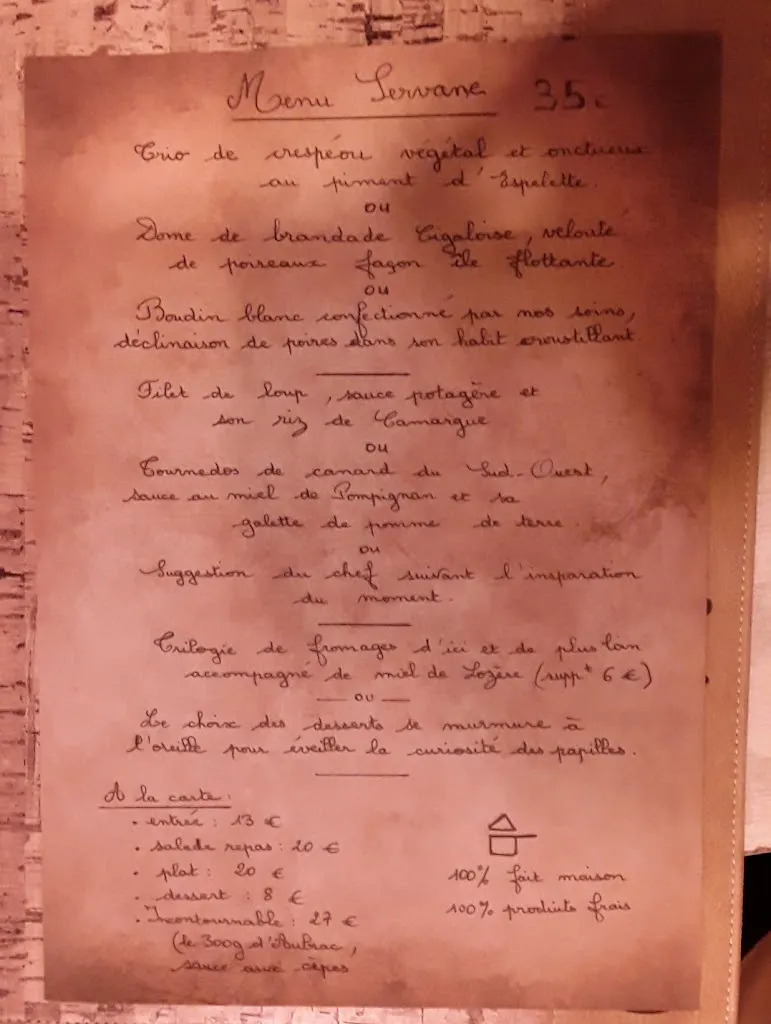 Menu Servane 35€
Trio de crespéou végétal et onctueux
au piment d'Espelette.
OU
Dome de brandade Cigaloise, velouté
de poireaux façon île flottante
OU
Boudin blanc confectionné par nos soins,
déclinaison de poires dans son habit croustillant
Filet de loup, sauce potagère et
son riz de Camargue
OU
Tournedos de canard du Sud-Ouest,
sauce au miel de Pompignan et sa
galette de pomme de terre.
OU
Suggestion du chef suivant l'insparation
du moment.
Trilogie de fromages d'ici et de plus loin
accompagné de miel de Lozère (suppt 6 €)
OU
Le choix des desserts se murmure à
l'oreille pour éveiller la curiosité des papilles.
A la carte:
• entrée : 13 €
• salade repas : 20 €
• plat : 20 €
• dessert : 8 €
• Incontournable : 27 €
(le 300g d'Aubrac,
sauce aux cèpes
100% fait maison
100% produits frais